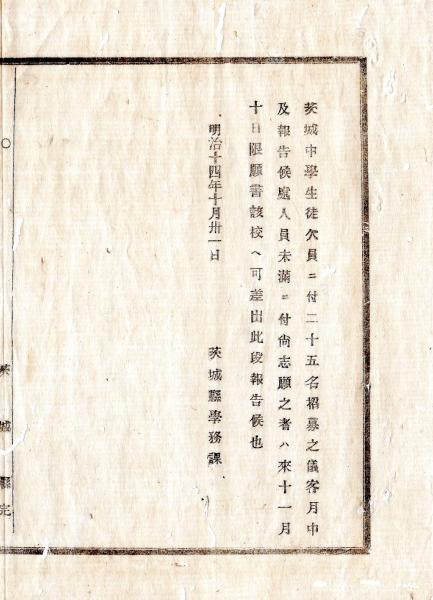 茨城中學生徒欠員ニ付二十五名招募之儀客月中
及報告候處人員未滿ニ付尙志願之者ハ來十一月
十日限願書該校ヘ可差出此段報告候也
明治十四年十月卅一日
茨城縣學務課
○
茨城縣